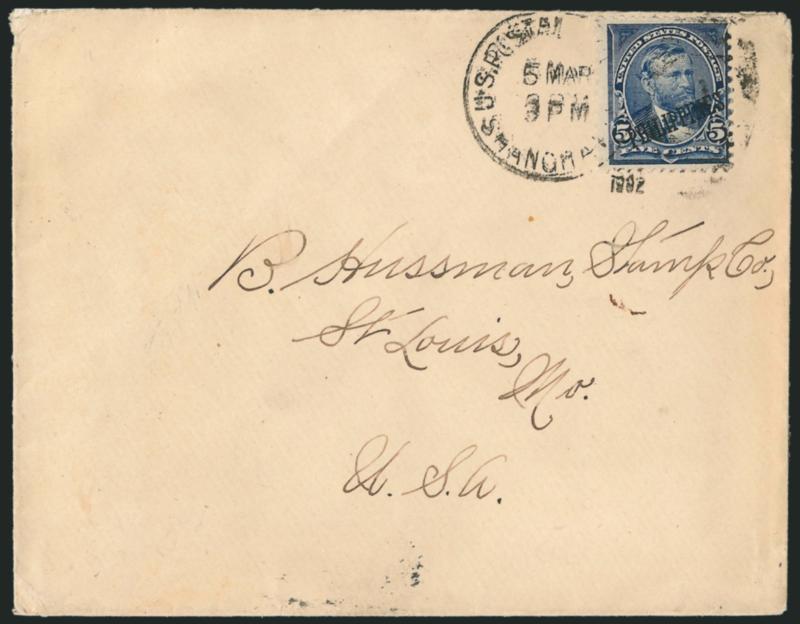 U.S. POSTAL
SHANGHAI
5 MAR
3 PM
1902
UNITED STATES POSTAGE
PHILIPPINES
5 5
FIVE CENTS
B. Hussman, Stamp Co.,
St Louis,
Mo.
U. S. A.